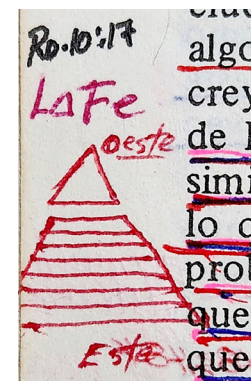 Ro. 10:17
La Fe
Oeste
Este
algo
crey
de l
simi
lo
prob
que
que